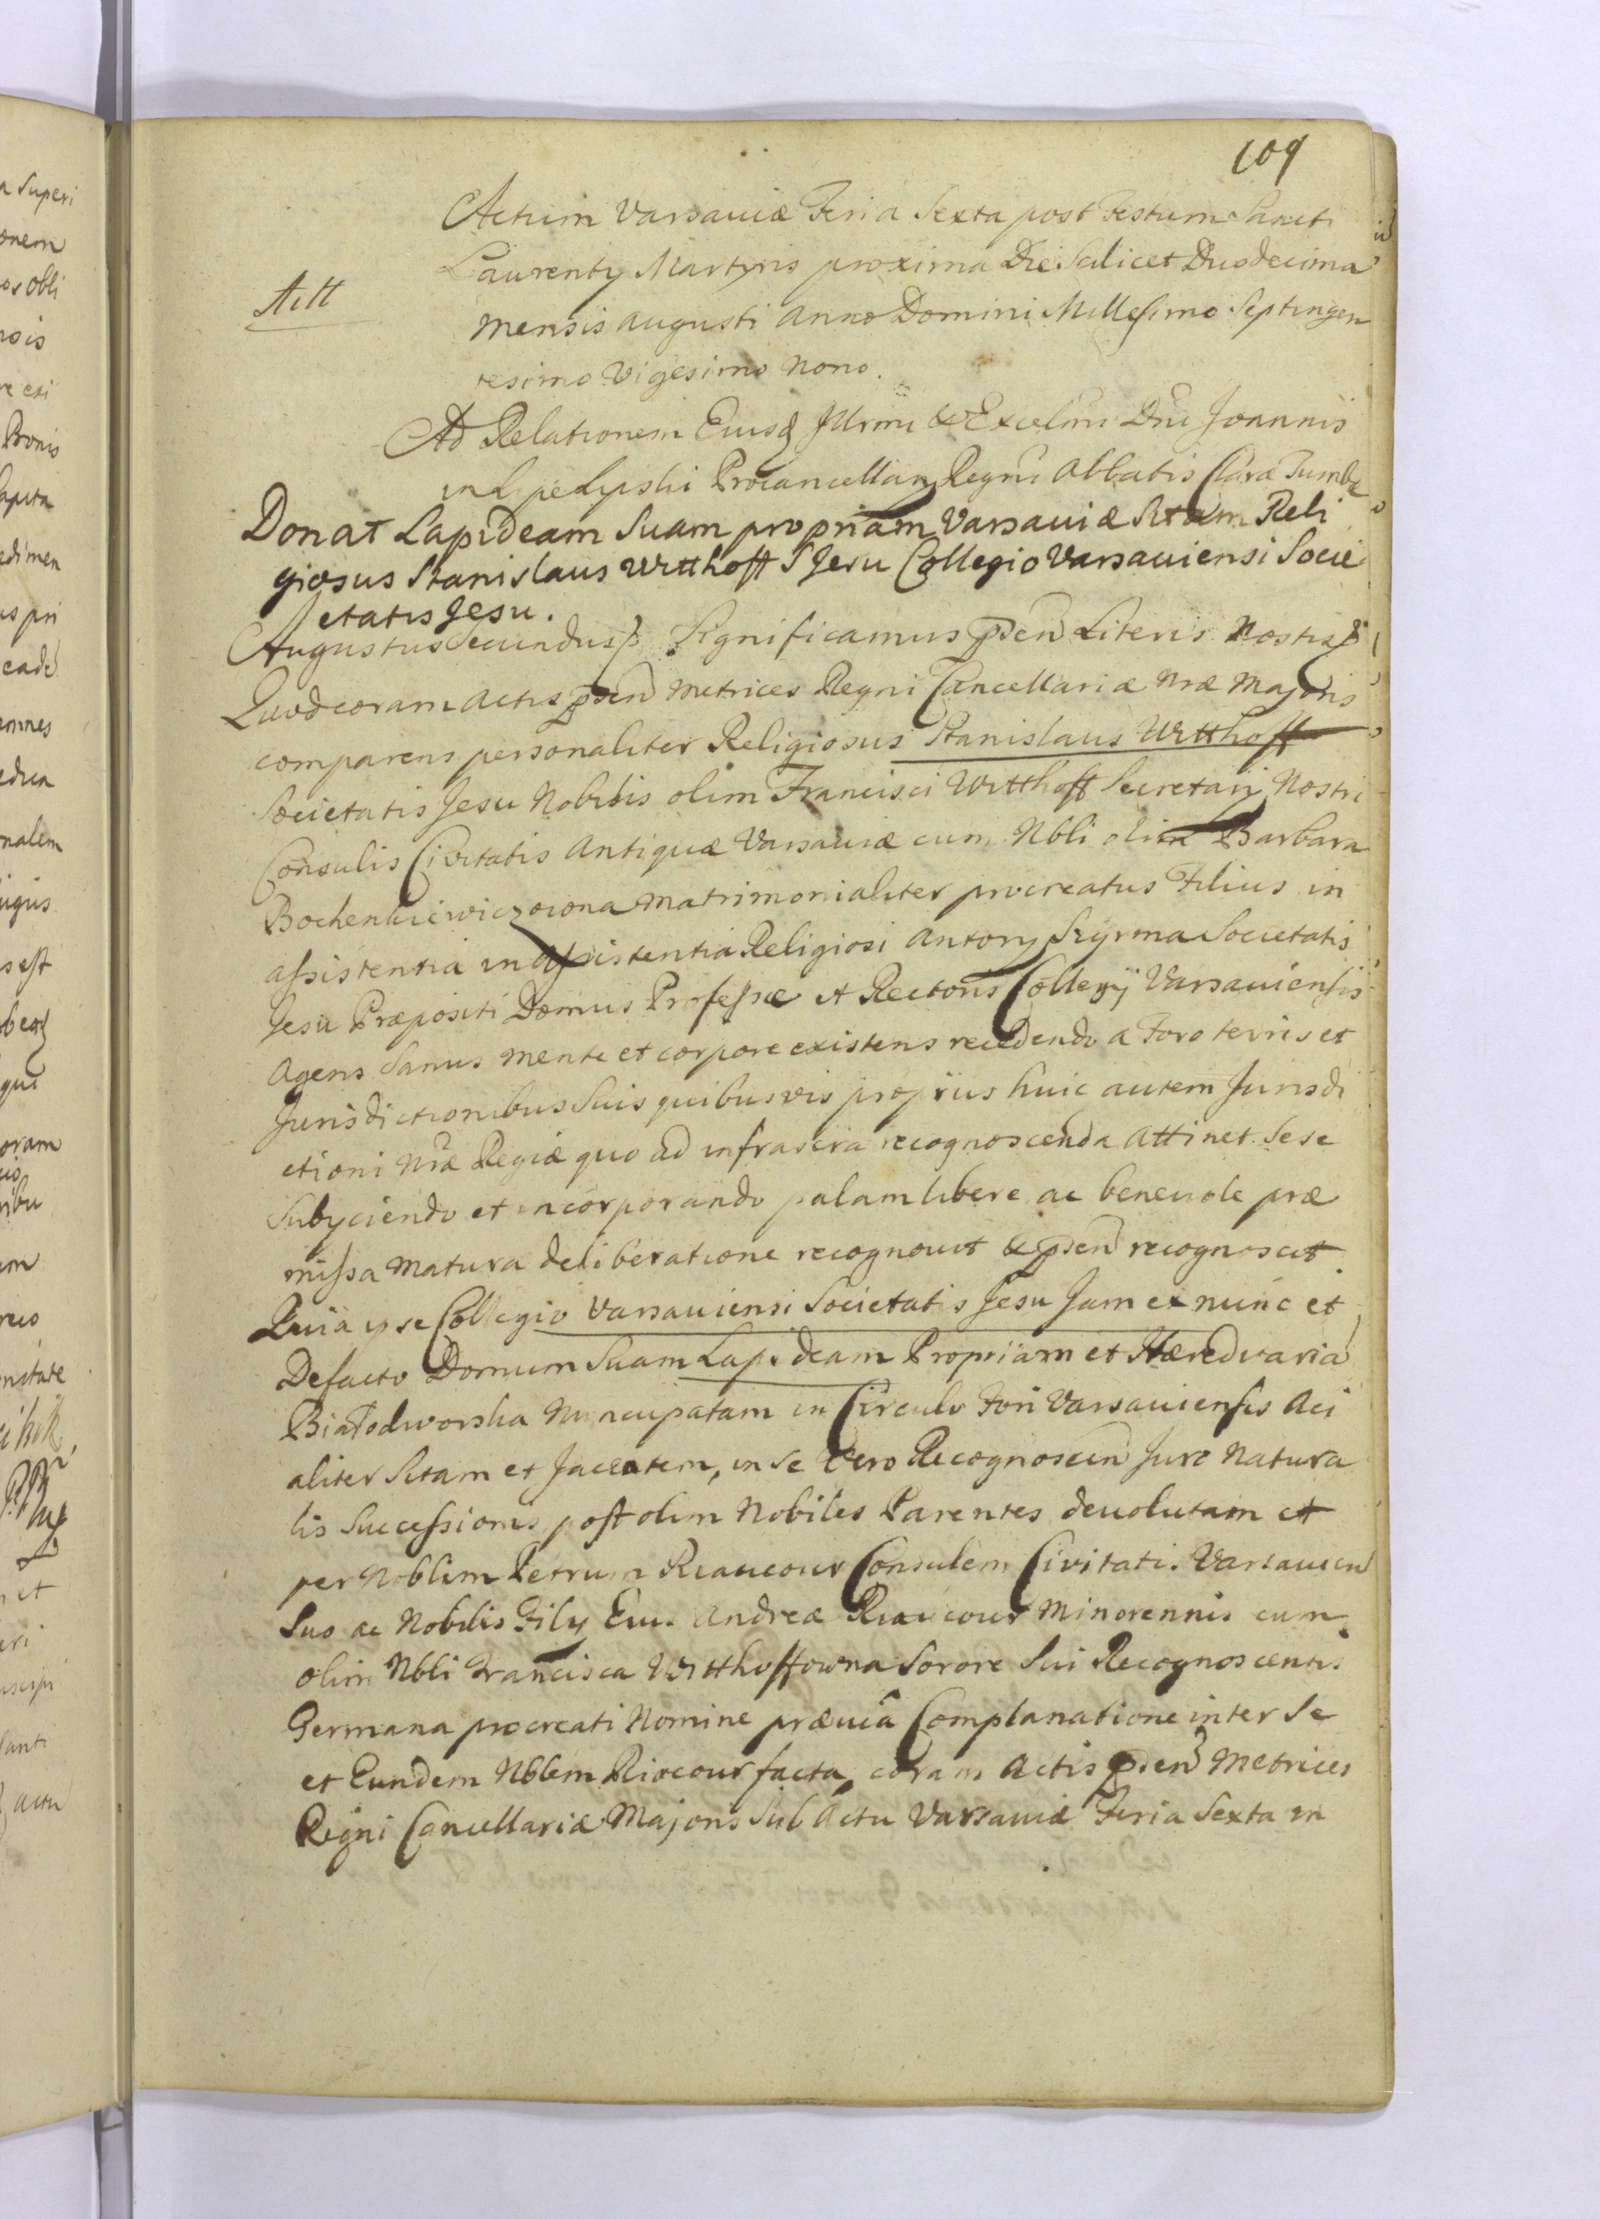 109
Actum Varsaviæ Feria Sexta post Festum Sancti
Laurentÿ Martyris proxima Die Scilicet Duodecima
Actt
Mensis Augusti Anno Domini Millesimo Septingen
tesimo Vigesimo Nono.
Ad Relationem Eiusq Illrmi & Excelmi Dni Joannis
in Lipe Lipski Procancellarÿ Regni Abbatis Claræ Tumbæ
Donat Lapideam Suam propriam Varsaviæ Sitam Reli
giosus Stanislaus Witthoff S Jesu Collegio Varsaviensi Socie
etatis Jesu.
Augustus Secundus Significamus pñsen Literis Nostris
Quod coram Actis pñsen Metrices Regni Cancellariæ Nræ Majoris
comparens personaliter Religiosus Stanislaus Witthoff
Societatis Jesu Nobilis olim Francisci Witthoff Secretarÿ Nostri
Consulis Civitatis Antiquæ Varsaviæ cum Nbli olim Barbara
Bochenkiewiczowna Matrimonialiter procreatus Filius in
assistentia in assistentia Religiosi Antonÿ Szyrma Societatis
Jesu Præpositi Domus Professæ et Rectoris Collegÿ Varsaviensis
Agens Sanus mente et corpore existens recedendo a Foro terris et
Jurisdictionibus Suis quibusvis propriis huic autem Jurisdi
ctioni Nræ Regiæ quo ad infrascra recognoscenda Attinet Sese
Subÿciendo et incorporando palam libere ac benevole præ
missa Matura deliberatione recognovit & pñsen recognoscit
Quia ipse Collegio Varsaviensi Societatis Jesu Jam ex nunc et
Defacto Domum Suam Lapideam Propriam et Hæreditaria
Białodworska Nuncupatam in Circulo Fori Varsaviensis Aci
aliter Sitam et Jacentem, in Se Vero Recognoscen Jure Natura
lis Successionis post olim Nobiles Parentes devolutam et
per Noblem Petrum Riaucour Consulem Civitatis Varsavien
Suo ac Nobilis Filÿ Eius Andreæ Riaucour Minorennis cum
olim Nbli Francisca Witthoffowna Sorore Sui Recognoscentis
Germana procreati Nomine præviâ Complanatione inter Se
et Eundem Nblem Riocour facta, coram Actis pñsen Metrices
Regni Cancellariæ Majoris Sub Actu Varsaviæ Feria Sexta in